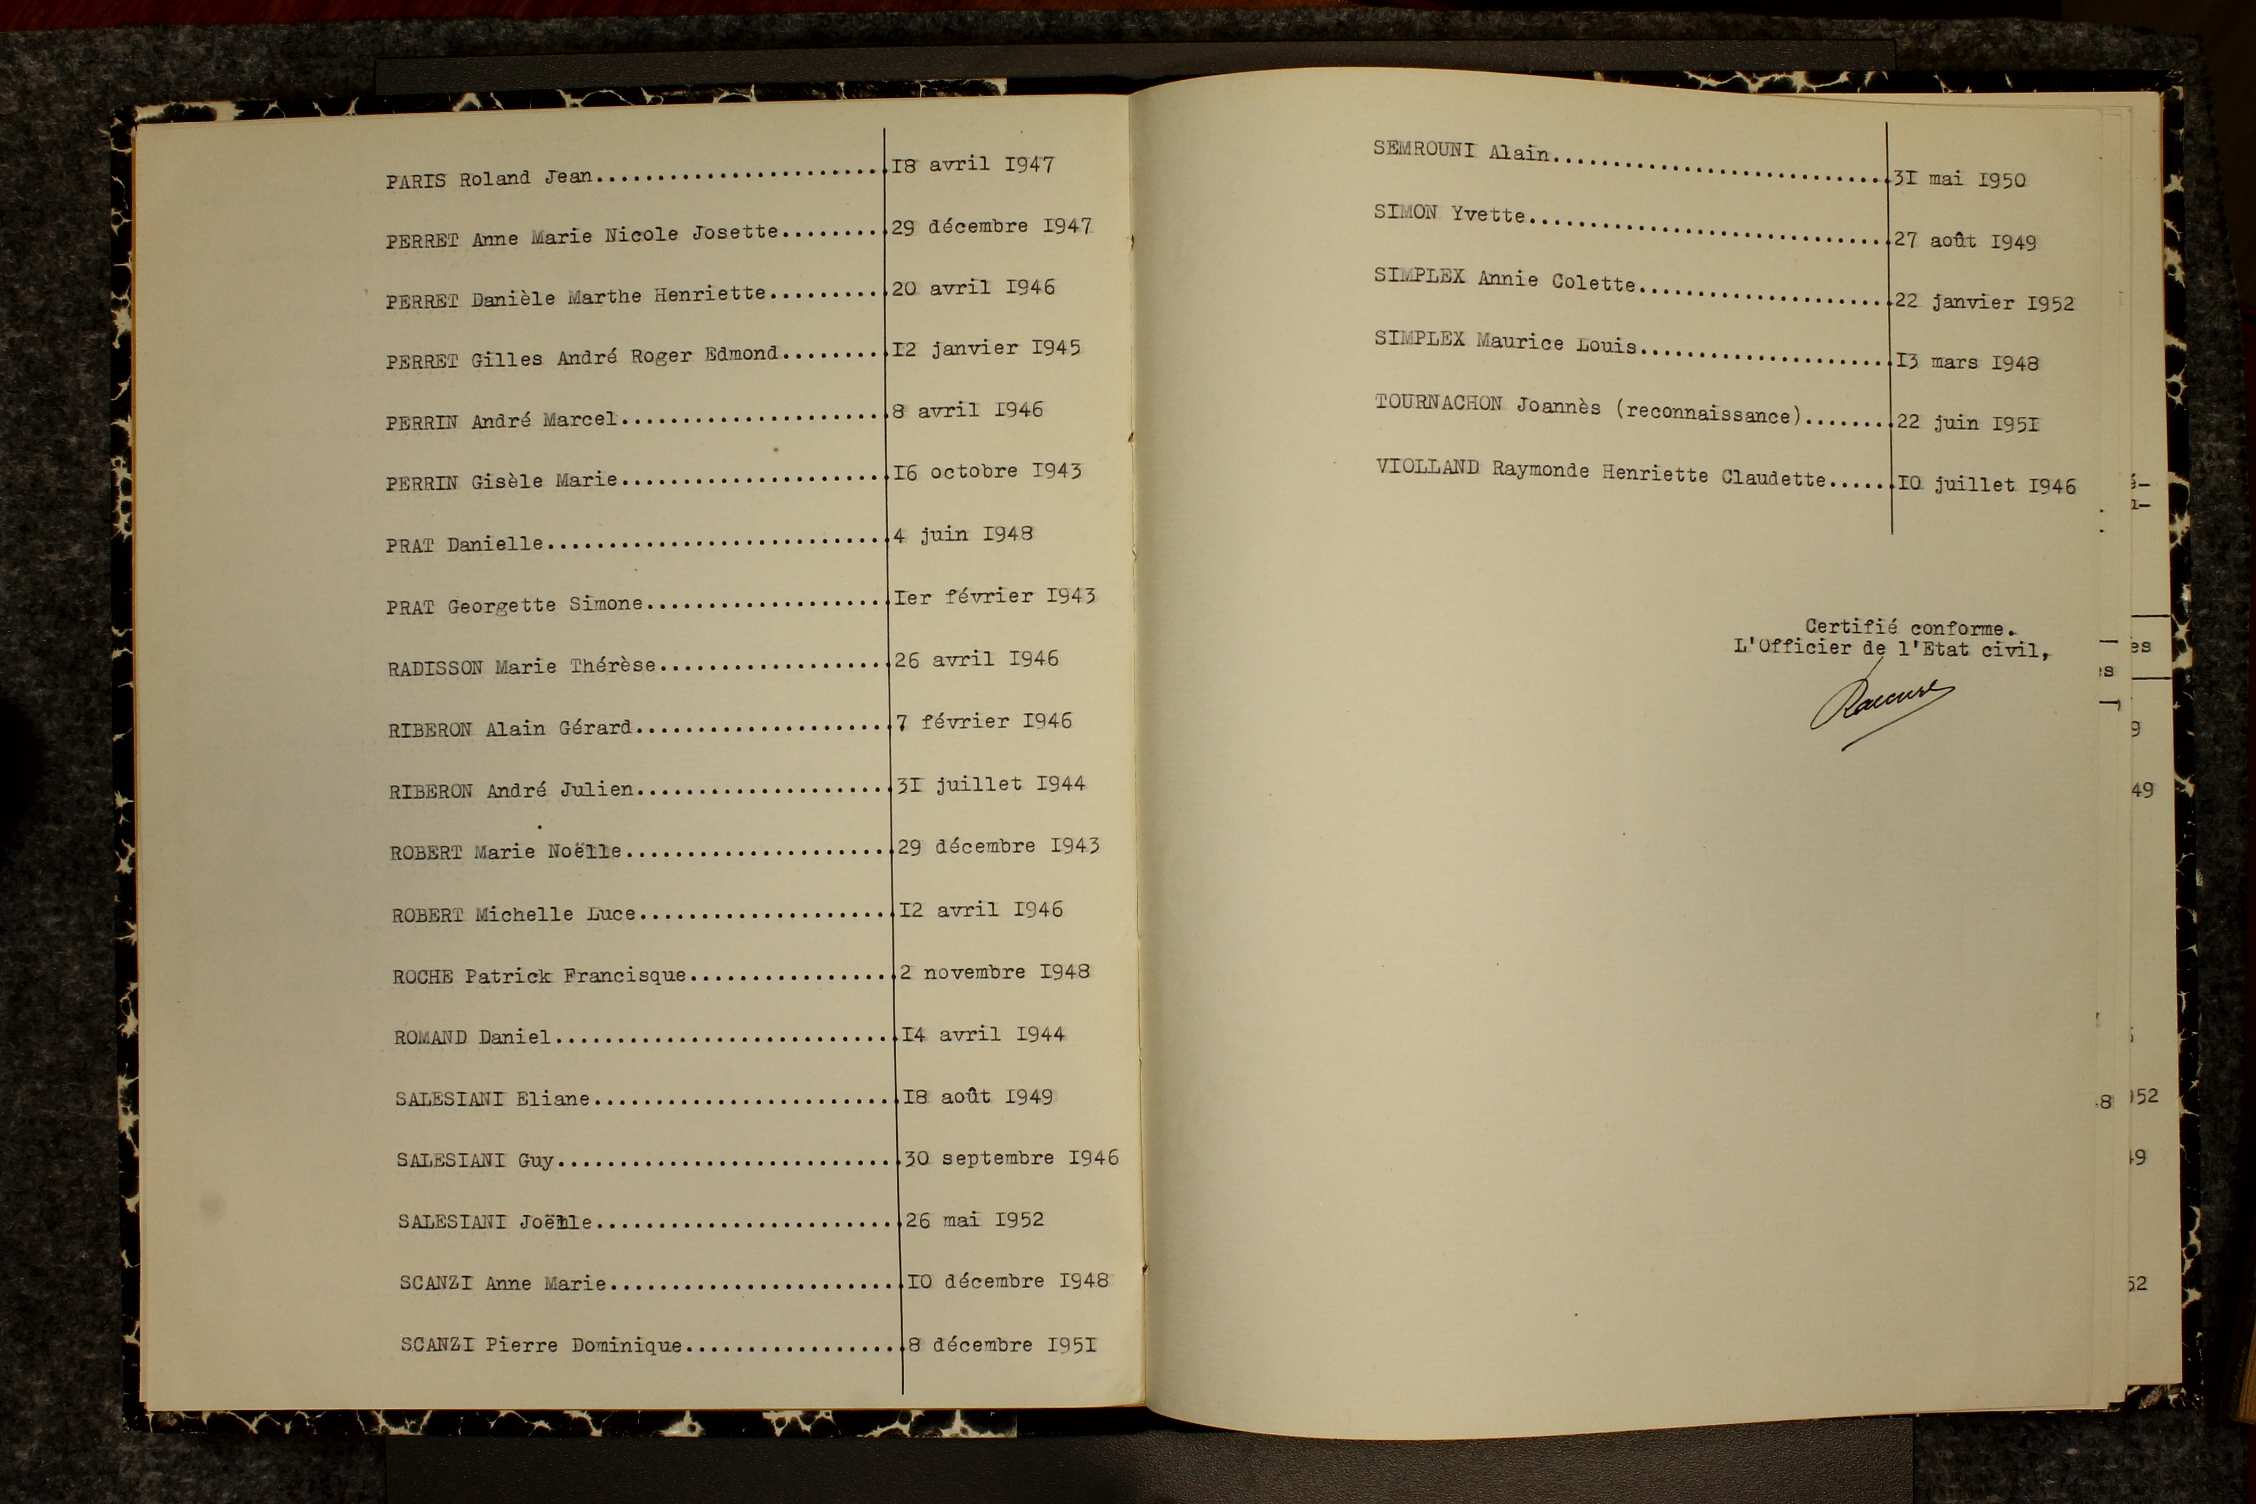 PARIS Roland Jean........................18 avril 1947
PERRET Anne Marie Nicole Josette.........29 décembre 1947
PERRET Danièle Marthe Henriette..........20 avril 1946
PERRET Gilles André Roger Edmond.........12 janvier 1945
PERRIN André Marcel......................8 avril 1946
PERRIN Gisèle Marie......................16 octobre 1943
PRAT Danielle............................4 juin 1948
PRAT Georgette Simone....................1er février 1943
RADISSON Marie Thérèse...................26 avril 1946
RIBERON Alain Gérard.....................7 février 1946
RIBERON André Julien.....................31 juillet 1944
ROBERT Marie Noëlle......................29 décembre 1943
ROBERT Michelle Luce.....................12 avril 1946
ROCHE Patrick Francisque.................2 novembre 1948
ROMAND Daniel............................14 avril 1944
SALESIANI Eliane.........................18 août 1949
SALESIANI Guy............................30 septembre 1946
SALESIANI Joëlle.........................26 mai 1952
SCANZI Anne Marie........................10 décembre 1948
SCANZI Pierre Dominique..................8 décembre 1951
SEMROUNI Alain............................31 mai 1950
SIMON Yvette..............................27 août 1949
SIMPLEX Annie Colette.....................22 janvier 1952
SIMPLEX Maurice Louis.....................13 mars 1948
TOURNACHON Joannès (reconnaissance).......22 juin 1951
VIOLLAND Raymonde Henriette Claudette.....10 juillet 1946
Certifié conforme.
L'Officier de l'Etat civil,